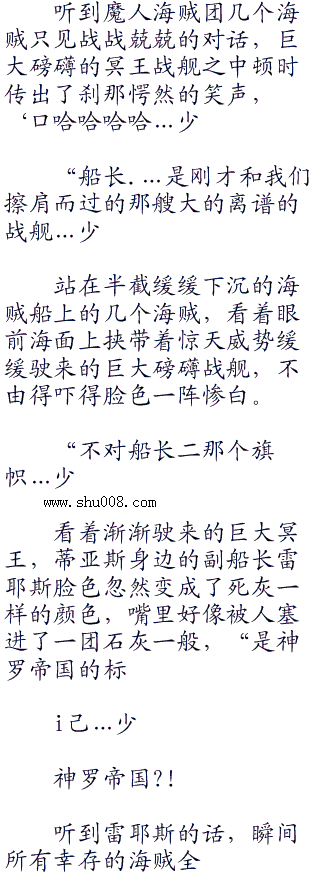 听到魔人海贼团几个海
贼只见战战兢兢的对话，巨
大磅礴的冥王战舰之中顿时
传出了刹那愕然的笑声，
‘口哈哈哈哈…少
“船长.…是刚才和我们
擦肩而过的那艘大的离谱的
战舰…少
站在半截缓缓下沉的海
贼船上的几个海贼，看着眼
前海面上挟带着惊天威势缓
缓驶来的巨大磅礴战舰，不
由得吓得脸色一阵惨白。
“不对船长二那个旗
帜…少
www.shu008.com
看着渐渐驶来的巨大冥
王，蒂亚斯身边的副船长雷
耶斯脸色忽然变成了死灰一
样的颜色，嘴里好像被人塞
进了一团石灰一般，“是神
罗帝国的标
i己…少
神罗帝国?!
听到雷耶斯的话，瞬间
所有幸存的海贼全